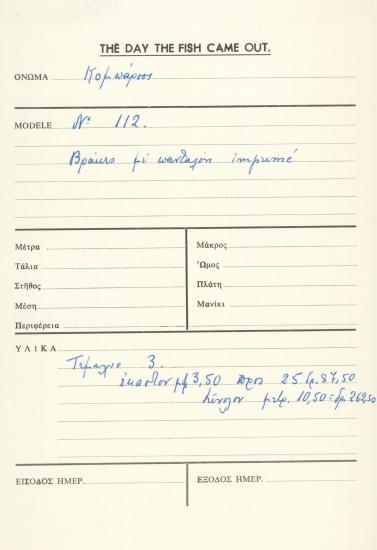 THE DAY THE FISH CAME OUT.
ΟΝΟΜΑ Κομπάρσος
MODELE Nº 112.
μὲ πανταλόνι imprimé
Μέτρα
Τάλια
Στῆθος
Μέση
Περιφέρεια
Μάκρος
Ὦμος
Πλάτη
Μανίκι
ΥΛΙΚΑ
Τεμάχια 3.
ἕκαστον μ 3,50 πρὸς 25 δρ. 87,50
Σύνολον μετρ. 10,50 = δρ. 262,50
ΕΙΣΟΔΟΣ ΗΜΕΡ.
ΕΞΟΔΟΣ ΗΜΕΡ.